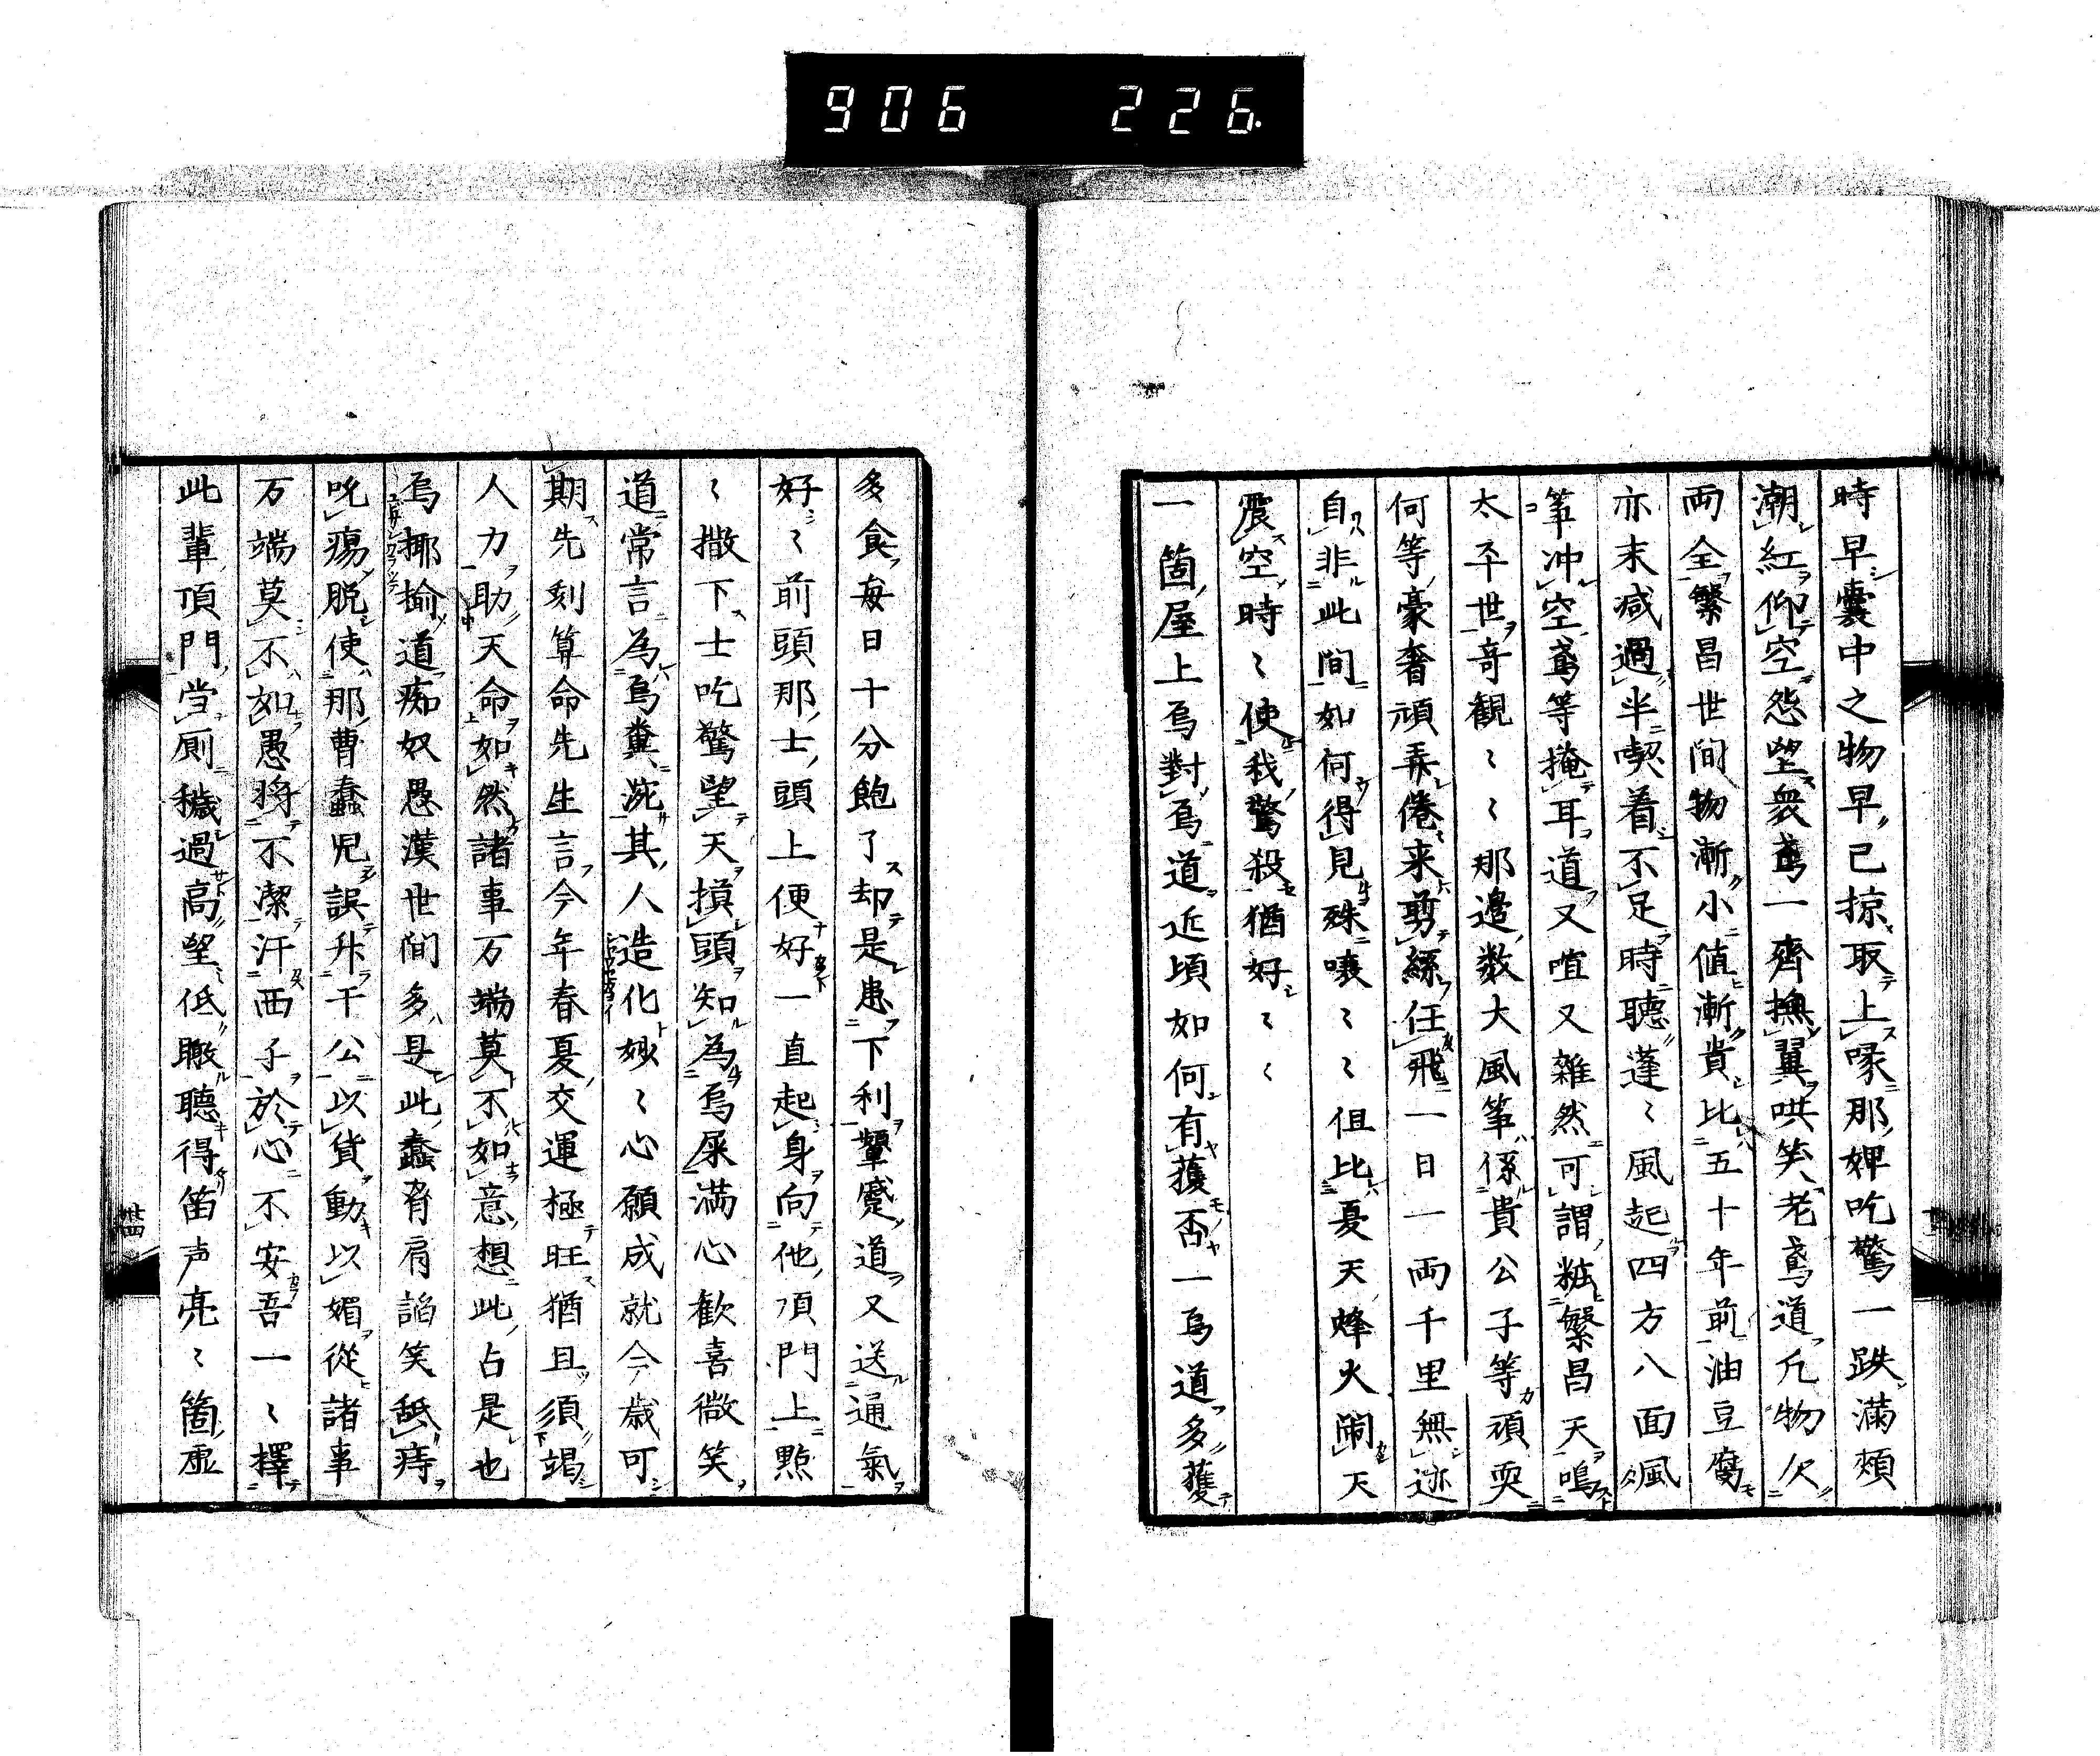 906 226
時早囊中之物早已掠取上喙那婢吃驚一跌滿頰
潮紅仰空怨望衆鳶一齊撫翼哄笑老鳶道凡物欠
両全繁昌世间物漸小値漸貴比五十年前油豆腐
亦末减過半喫着不足時聽蓬〻風起四方八面颯
筝冲空鳶等掩耳道又喧又雜然可謂粧繁昌天鳴
太平世竒観〻〻那邉数大風筝係貴公子等頑耍
何等豪奢頑弄倦来剪絲任飛一日一両千里無迹
自非此间如何得見殊嚷〻〻但比憂天蜂火閙天
震空時〻使我驚殺猶好〻〻
一箇屋上烏對烏道近頃如何有獲否一烏道多獲
多食每日十分飽了却是患下利顰蹙道又送通氣
好〻前頭那士頭上便好一直起身向他頂門上點
〻撒下士吃驚望天摸頭知為烏屎满心歓喜微笑
道常言為烏糞涴其人造化妙〻心願成就今歳可
期先刻算命先生言今年春夏交運極旺猶且須竭
人力助天命如然諸事万端莫不如意想此占是也
烏揶揄道痴奴愚漢世间多是此蠢脅肩諂笑舐痔
吮瘍脱使那曹蠢児誤升干公以貨動以媚從諸事
万端莫不如愚將不潔汗西子於心不安吾一〻擇
此輩頂門当厠穢過高望低瞰聽得笛声亮〻箇虚
卌四